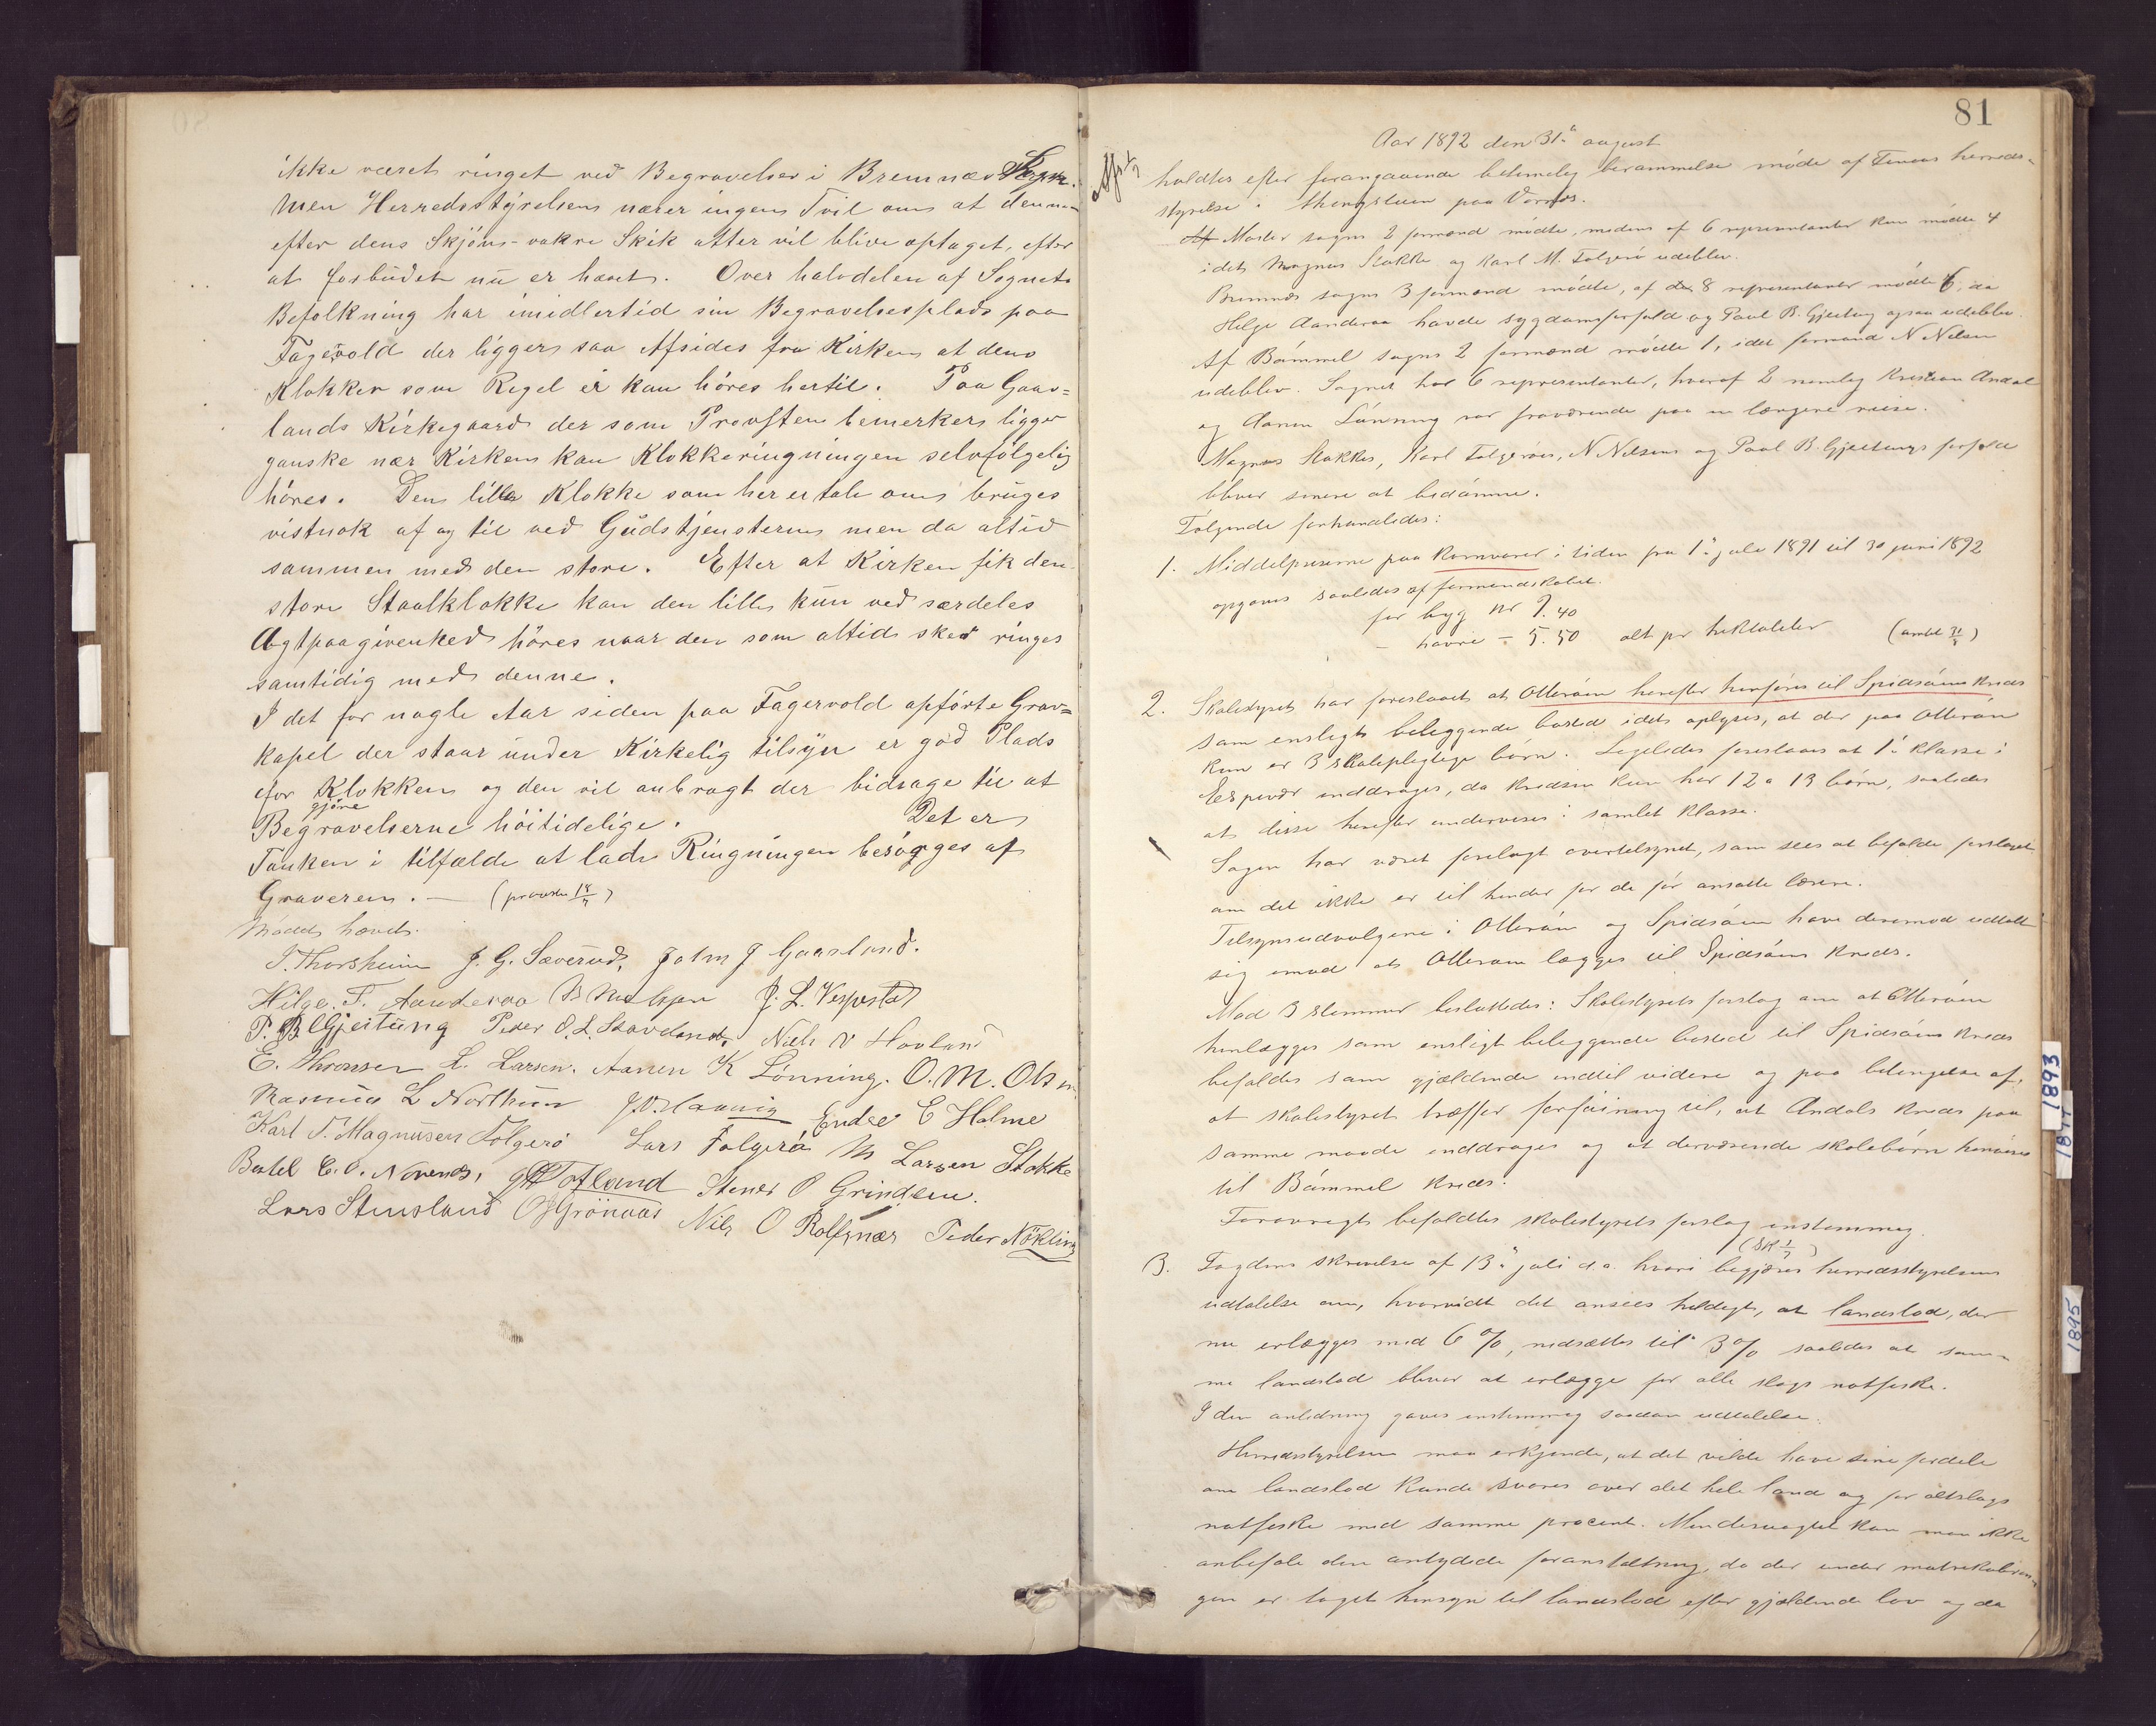 ikke været ringet ved Begravelser i Bremnæs Sogn.
Men Herredsstyrelsen nærer ingen Tvil om at denne
efter dens Skjøn - vakre Skik atter vil blive optaget, efter
at forbudet nu er hævet. Over halvdelen af Sognets
Befolkning har imidlertid sin Begravelsesplads paa
Fagervold der ligger saa Afsides fra Kirken at dens
Klokker som Regel ei kan høres hertil. Paa Gaar=
lands Kirkegaard der som Provsten bemerker ligger
ganske nær Kirken kan Klokkeringningen selvfølgelig
høres. Den lille Klokke som her er tale om bruges
vistnok af og til ved Gudstjensterne men da altid
sammen med den store. Efter at Kirken fik den
store Staalklokke kan den lille kun ved særdeles
Agtpaagivenhed høres naar den som altid sker ringes
samtidig med denne.
I det for nogle Aar siden paa Fagervold opførte Grav=
kapel der staar under Kirkelig tilsyn er god Plads
for Klokken og den vil anbragt der bidrage til at
gjøre
Begravelserne høitidelige. Det er
Tanken i tilfælde at lade Ringningen besørges af
Graveren. — (provsten 18/)
Mødet hævet.
T. Thorsheim J. G. Sæverud, John J Gaarland.
Helge. T. Aanderaa B Nielsen J. L. Vespestad
P. B. Gjeitung Peder O. L. Skovland, Nils N Hovland
E. Thronsen L. Larsen. Aanen K Lønning. O. M. Olsen
Rasmus L Northun Endre E Holme
Karl T. Magnusen Folgerø Lars Folgerø M Larsen Stokke
Bertel E. O. Nornes, Tofland Stener O Grindeim.
Lars Stensland O Grönaas Nils O Rolfsnæs Peder Nökling
81
Aar 1892 den 31te august
holdtes efter forangaaende betimelig berammelse møde af Finaas herreds-
styrelse i thingstuen paa Vornæs.
Af Moster sogns 2 formænd mødte, medens af 6 representanter kun mødte 4
idet Magnus Stokke og Karl M. Folgerø udeblev.
Bremnæs sogns 3 formænd mødte, af de 8 representanter mødte 6, da
Helge Aanderaa havde sygdomsforfald og Paul B. Gjeitung ogsaa udeblev.
Af Bømmel sogns 2 formænd mødte 1, idet formand N Nilsen
udeblev. Sognet har 6 representanter, hvoraf 2 nemlig Kristian Andal
og Aanen Lønning var fraværende paa en længere reise.
Magnus Stokkes, Karl Folgerøs, N Nilsens og Paul B. Gjeitungs forfald
bliver senere at bedømme.
Følgende forhandledes:
1. Middelpriserne paa kornvarer i tiden fra 1te juli 1891 til 30 juni 1892
opgaves saaledes af formandskabet.
for byg kr 9.40
- havre - 5.50 alt pr hektoliter (amtet 31/8)
2. Skolestyret har foreslaaet at Otterøen herefter henføres til Spidsøens kreds
som ensligt beliggende bosted idet oplyses, at der paa Otterøen
kun er 3 skolepligtige børn. Ligeledes foreslaaes at 1te klasse i
Espevær inddrages, da kredsen kun har 12 a 13 børn, saaledes
at disse herefter undervises i samlet klasse.
Sagen har været forelagt overtilsynet, som sees at bifalde forslaget
om det ikke er til hinder for de før ansatte lærere.
Tilsynsudvalgene i Otterøen og Spidsøen have derimod udtalt
sig imod at Otterøen lægges til Spidsøens kreds.
Mod 3 stemmer besluttedes: Skolestyrets forslag om at Otterøen
henlægges som ensligt beliggende bosted til Spidsøens kreds
bifaldes som gjældende indtil videre og paa betingelse af,
at skolestyret træffer forføining til, at Andals kreds paa
samme maade inddrages og at derværende skolebørn henvises
til Bømmel kreds.
Forøvrigt bifaldtes skolestyrets forslag enstemmig.
(SK 1/9)
3. Fogdens skrivelse af 13de juli d.a. hvori begjæres herredsstyrelsens
udtalelse om, hvorvidt det ansees heldigt, at landslod, der
nu erlægges med 6 %, nedsættes til 3 % saaledes at sam-
me landslod bliver at erlægge for alle slags notfiske.
I den anledning gaves enstemmig saadan udtalelse:
Herredsstyrelsen maa erkjende, at det vilde have sine fordele
om landslod kunde svares over det hele land og for altslags
notfiske med samme procent. Mindesmagtet kan man ikke
anbefale den antydede foranstaltning, da der under matrikulerin-
gen er taget hensyn til landslod efter gjældende lov og da
1893
1894
1895